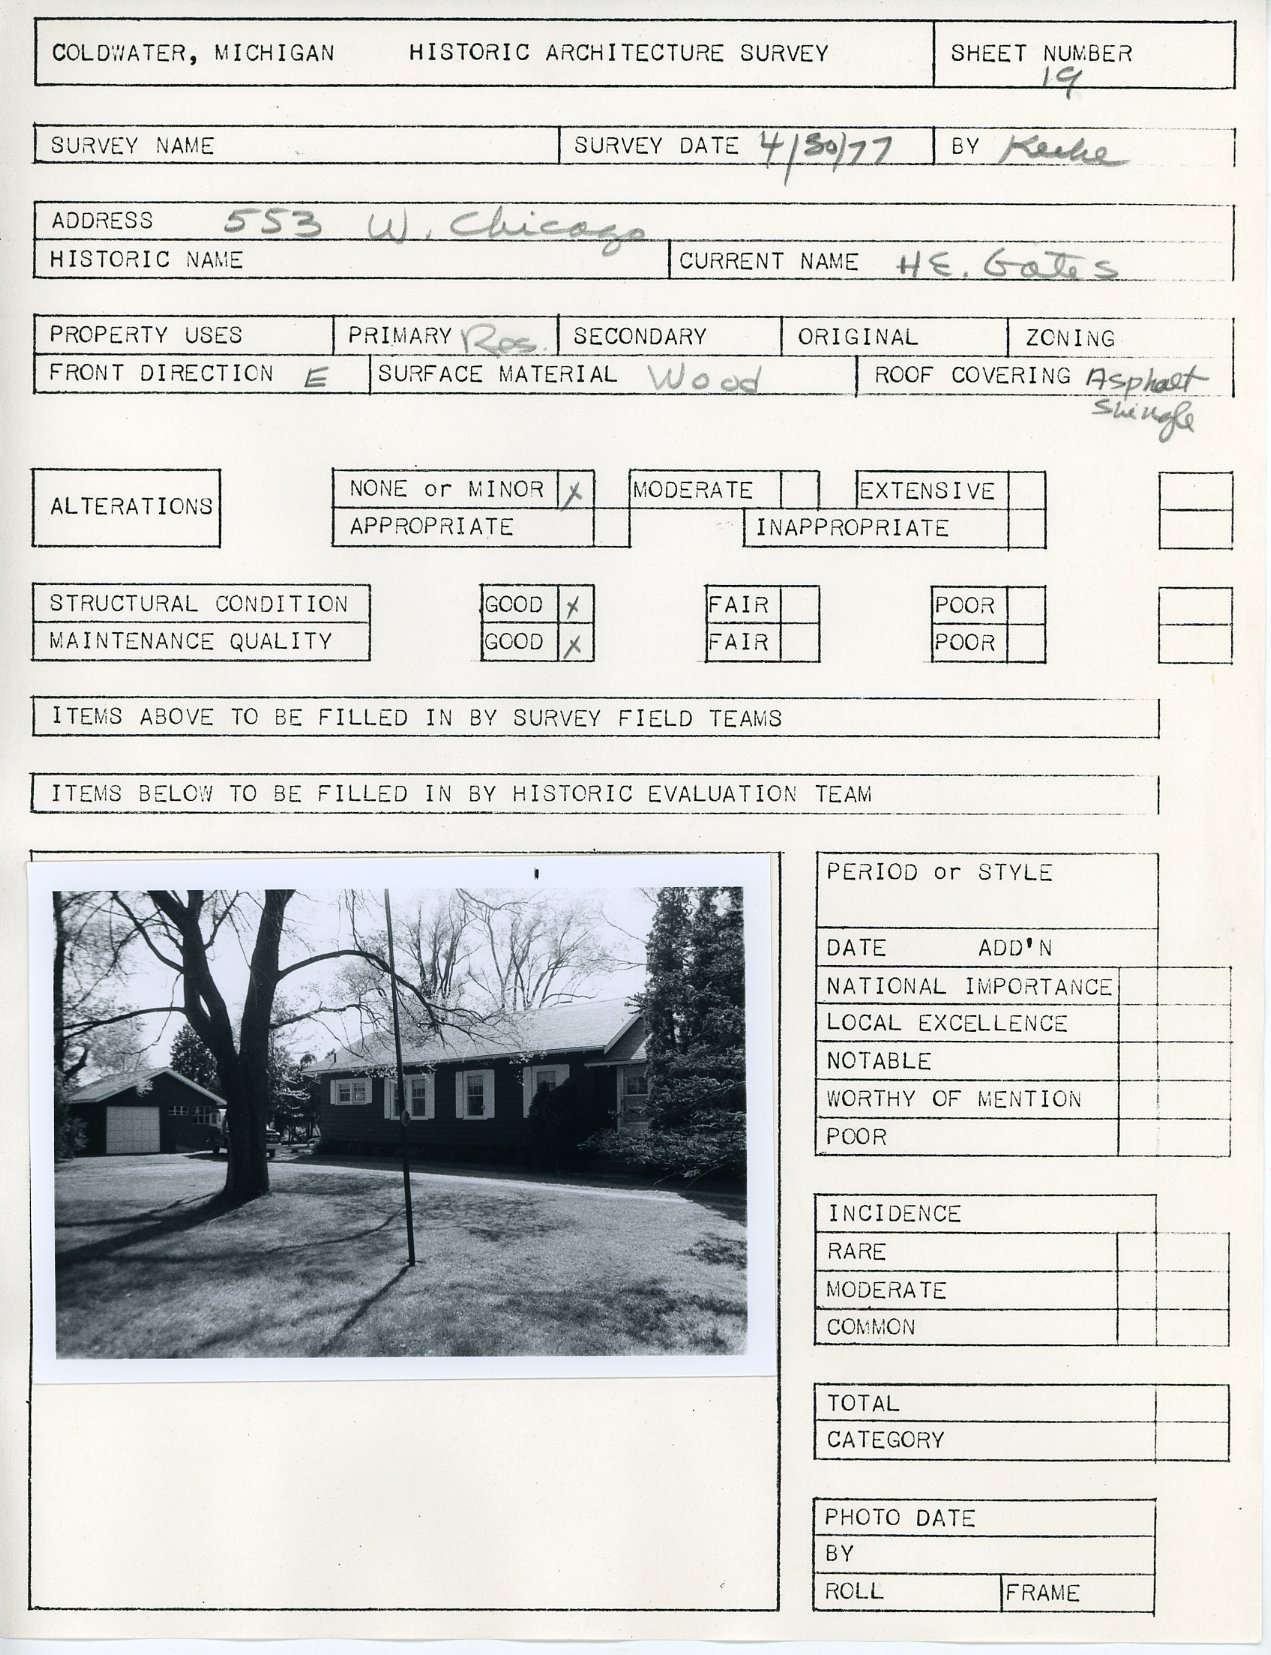 COLDWATER, MICHIGAN HISTORIC ARCHITECTURE SURVEY SHEET NUMBER
19
SURVEY NAME SURVEY DATE 4/30/77 BY
ADDRESS 553 W. Chicago
HISTORIC NAME CURRENT NAME HE. Gates
PROPERTY USES PRIMARY Res. SECONDARY ORIGINAL ZONING
FRONT DIRECTION E SURFACE MATERIAL Wood ROOF COVERING Asphalt
Shingle
ALTERATIONS NONE or MINOR x MODERATE EXTENSIVE
APPROPRIATE INAPPROPRIATE
STRUCTURAL CONDITION GOOD x FAIR POOR
MAINTENANCE QUALITY GOOD x FAIR POOR
ITEMS ABOVE TO BE FILLED IN BY SURVEY FIELD TEAMS
ITEMS BELOW TO BE FILLED IN BY HISTORIC EVALUATION TEAM
PERIOD or STYLE
DATE ADD'N
NATIONAL IMPORTANCE
LOCAL EXCELLENCE
NOTABLE
WORTHY OF MENTION
POOR
INCIDENCE
RARE
MODERATE
COMMON
TOTAL
CATEGORY
PHOTO DATE
BY
ROLL FRAME